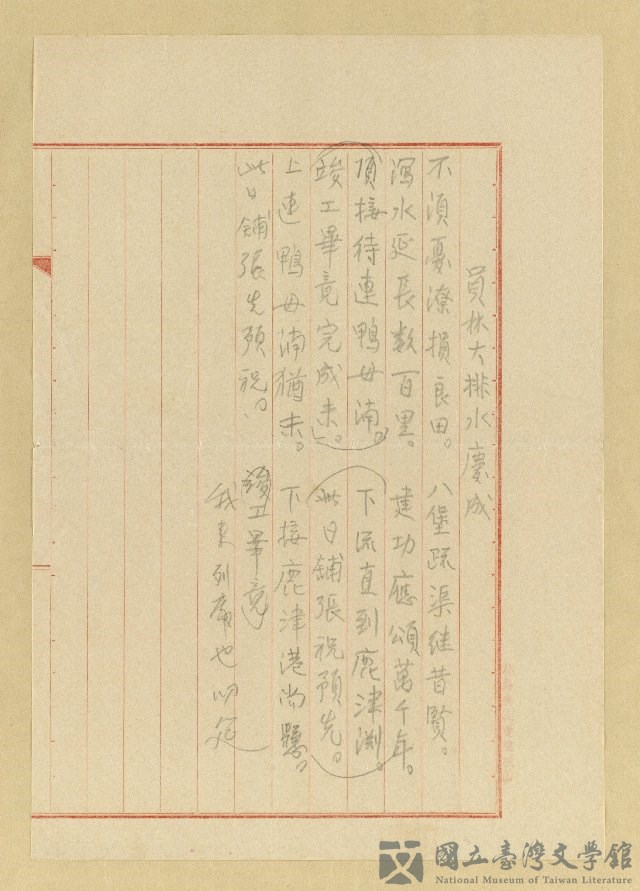 員林大排水慶成
不須憂潦損良田。八堡疏渠繼昔賢。
瀉水延長数百里。建功應頌萬千年。
頂接待連鴨母湳。下流直到鹿津渊。
竣工畢竟完成未。此日鋪張祝預先。
上連鴨母湳猶未。下接鹿津港尚懸。
此日鋪張先預祝。竣工畢竟
我来列席也
國立臺灣文學館
National Museum of Taiwan Literature